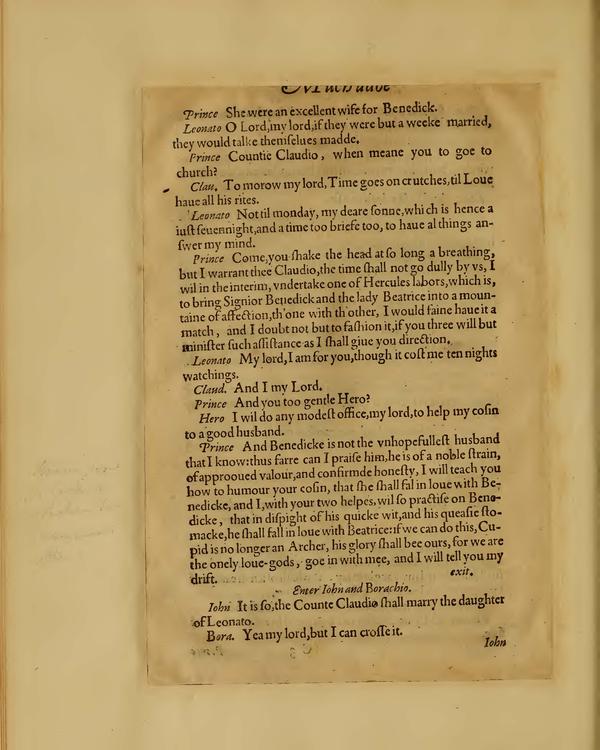 Prince She were an excellent wife for Benedick.
Leonato O Lord, my lord, if they were but a weeke married,
they would talke themſelues madde.
Prince Countie Claudio, when meane you to goe to
church?
Clau. To morow my lord, Time goes on crutches, til Loue
haue all his rites.
Leonato Not til monday, my deare ſonne, which is hence a
iuſt ſeuennight, and a time too briefe too, to haue al things an-
ſwer my mind.
Prince Come, you ſhake the head at ſo long a breathing,
but I warrant thee Claudio, the time ſhall not go dully by vs, I
wil in the interim, vndertake one of Hercules labors, which is,
to bring Signior Benedick and the lady Beatrice into a moun-
taine of affection, th'one with th'other, I would faine haue it a
match, and I doubt not but to faſhion it, if you three will but
miniſter ſuch aſſiſtance as I ſhall giue you direction.
Leonato My lord, I am for you, though it coſt me ten nights
watchings.
Claud. And I my Lord.
Prince And you too gentle Hero?
Hero I wil do any modeſt office, my lord, to help my coſin
to a good husband.
Prince And Benedicke is not the vnhopefulleſt husband
that I know: thus farre can I praiſe him, he is of a noble ſtrain,
of approoued valour, and confirmde honeſty, I will teach you
how to humour your coſin, that ſhe ſhall fal in loue with Be-
nedicke, and I, with your two helpes, wil ſo practiſe on Bene-
dicke, that in diſpight of his quicke wit, and his queaſie ſto-
macke, he ſhall fall in loue with Beatrice: if we can do this, Cu-
pid is no longer an Archer, his glory ſhall bee ours, for we are
the onely loue-gods, goe in with mee, and I will tell you my
drift. exit.
Enter Iohn and Borachio.
Iohn It is ſo, the Counte Claudio ſhall marry the daughter
of Leonato.
Bora. Yea my lord, but I can croſſe it.
Iohn